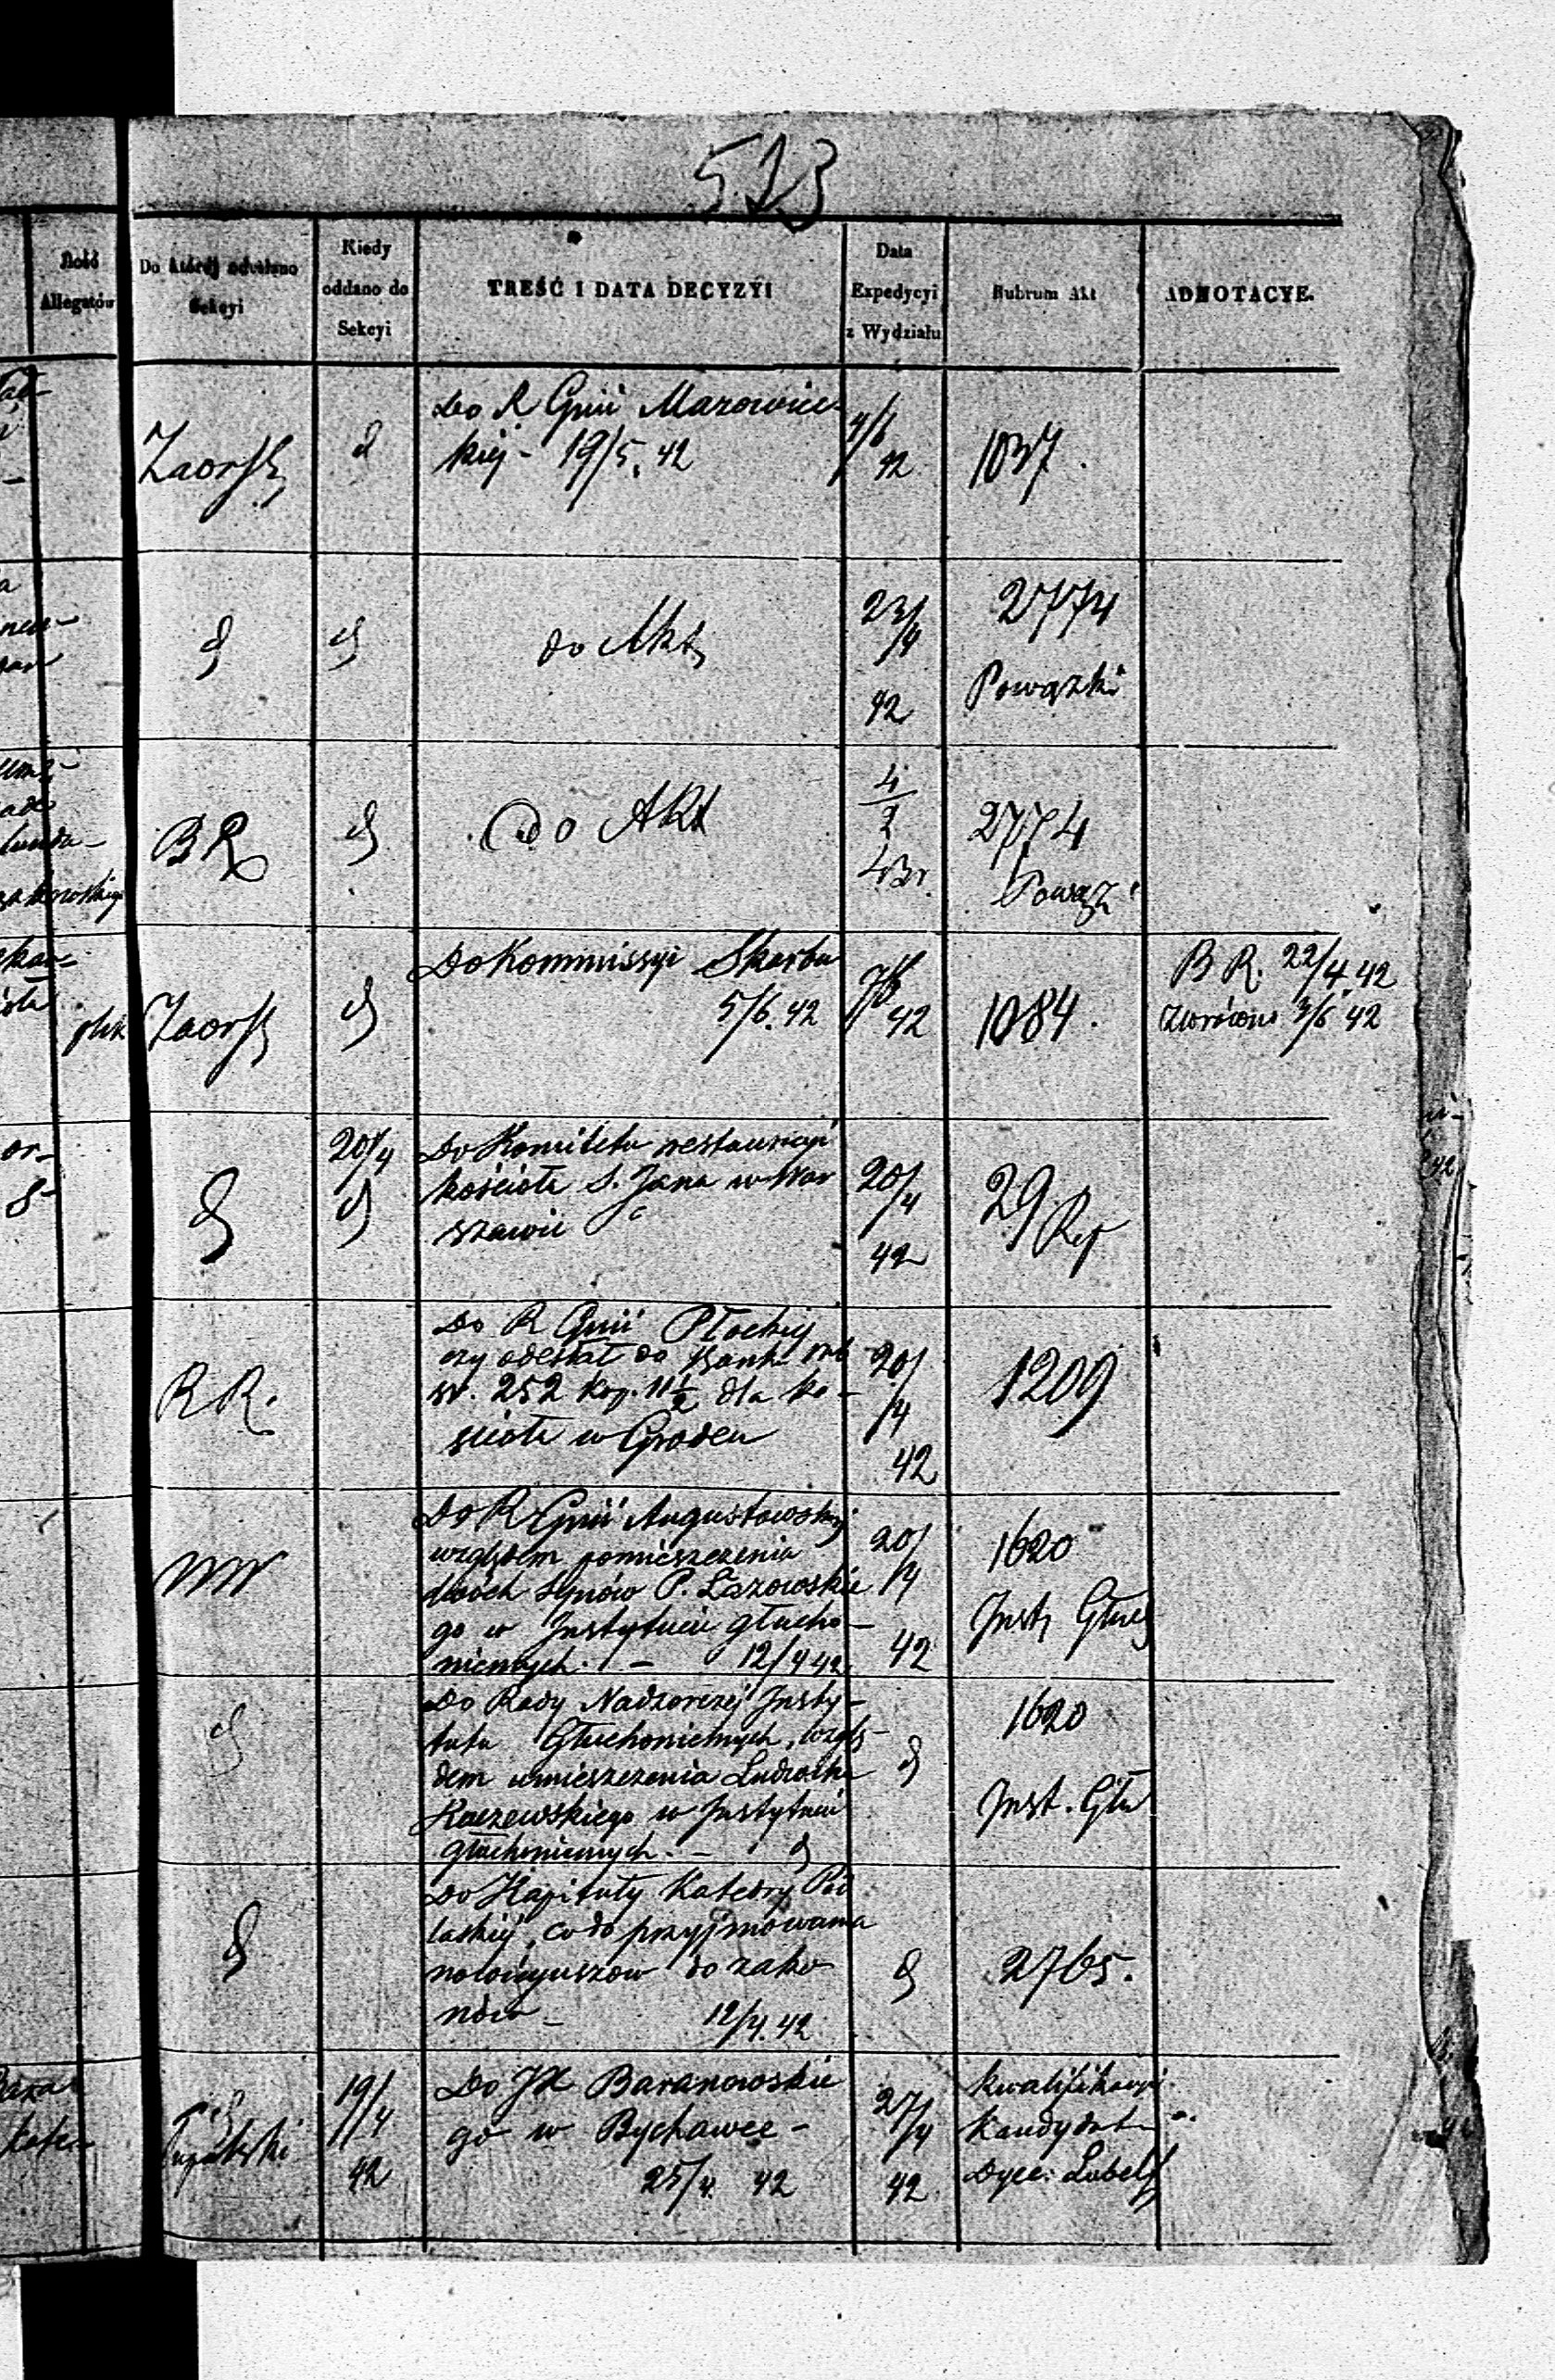 513
Ilość
Allegatów
Do której odesłano
Sekcyi
Kiedy
oddano do
Sekcyi
TREŚĆ I DATA DECYZYI
Data
Expedycyi
z Wydziału
Rubrum Akt
ADNOTACYE.
Do R Gnii Mazowiec-
kiej - 19/5. 42
42
1037.
do Akt
23/4
42
2774
Powązki
BR
do Akt
2774
Do Kommissyi Skarbu
5/6. 42
42
1084.
B R. 22/4. 42
Zwrócono 3/6 42
20/4
Do Komitetu restauracyi
kościoła S. Jana w War
szawie
20/4
42
29 Rp
RR.
Do R Gnii Płockiej
czy odesłał do Banku rub
sr. 252 kop. 11½ dla ko-
ścioła w
20/4
42
1209
Do R Gnii Augustowskiej
względem pomieszczenia
dwóch synów P. Łazowskie
go w Instytucie głucho-
niemych. - 12/4 42
20/4
42
1620
Inst. Głuch
Do Rady Nadzorczej Insty-
tutu Głuchoniemych, wzglę-
dem umieszczenia Ludwika
Kaczewskiego w Instytucie
głuchoniemych. -
1620
Inst. Głu
Do Kapituły Katedry Pod
laskiej, co do przyjmowania
nowicyuszów do zako-
nów - 12/4. 42
2765.
19/4
42
Do JX Baranowskie
go w Bychawce -
25/4. 42
27/4
42
kwalifikacyi
kandydat
Dyec. Lubels